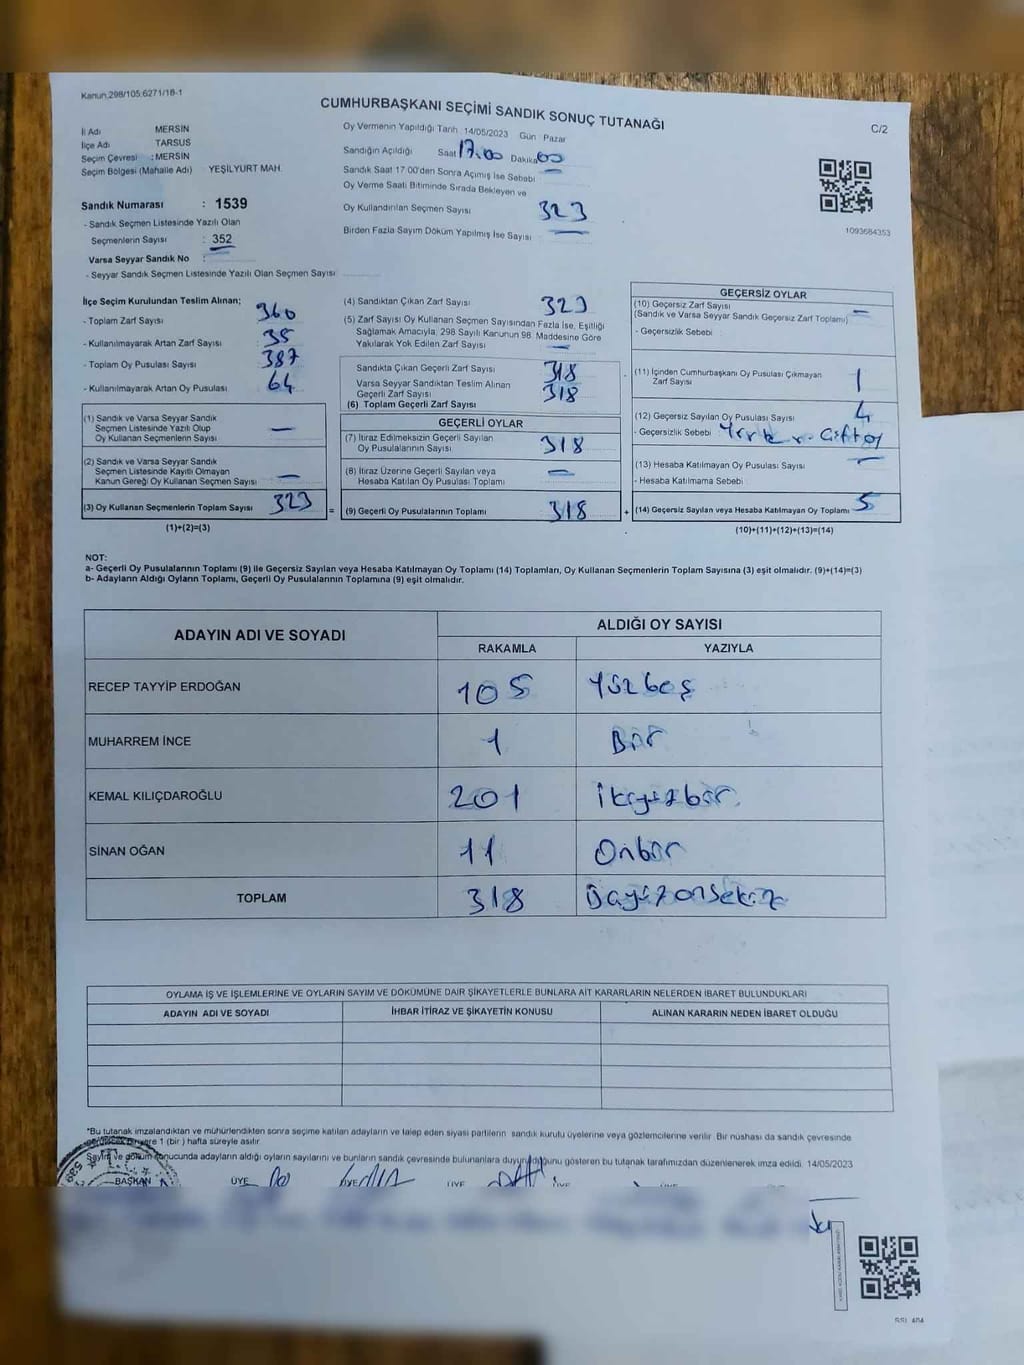 Kanun,298/105,6271/18-1
CUMHURBAŞKANI SEÇİMİ SANDIK SONUÇ TUTANAĞI
C/2
İl Adı MERSİN
İlçe Adı TARSUS
Seçim Çevresi : MERSİN
Seçim Bölgesi (Mahalle Adı) YEŞİLYURT MAH.
Sandık Numarası : 1539
- Sandık Seçmen Listesinde Yazılı Olan
Seçmenlerin Sayısı : 352
Varsa Seyyar Sandık No :
- Seyyar Sandık Seçmen Listesinde Yazılı Olan Seçmen Sayısı
Oy Vermenin Yapıldığı Tarih 14/05/2023 Gün Pazar
Sandığın Açıldığı Saat 17.00 Dakika 00
Sandık Saat 17 00'den Sonra Açımış İse Sebebi
Oy Verme Saati Bitiminde Sırada Bekleyen ve
Oy Kullandırılan Seçmen Sayısı 323
Birden Fazla Sayım Döküm Yapılmış İse Sayısı
1093684353
İlçe Seçim Kurulundan Teslim Alınan;
- Toplam Zarf Sayısı 360
- Kullanılmayarak Artan Zarf Sayısı : 35
- Toplam Oy Pusulası Sayısı 387
- Kullanılmayarak Artan Oy Pusulası 64
(1) Sandık ve Varsa Seyyar Sandık
Seçmen Listesinde Yazılı Olup
Oy Kullanan Seçmenlerin Sayısı —
(2) Sandık ve Varsa Seyyar Sandık
Seçmen Listesinde Kayıtlı Olmayan
Kanun Gereği Oy Kullanan Seçmen Sayısı —
(3) Oy Kullanan Seçmenlerin Toplam Sayısı 323
(1)+(2)=(3)
=
(4) Sandıktan Çıkan Zarf Sayısı 323
(5) Zarf Sayısı Oy Kullanan Seçmen Sayısından Fazla İse, Eşitliği
Sağlamak Amacıyla, 298 Sayılı Kanunun 98. Maddesine Göre
Yakılarak Yok Edilen Zarf Sayısı —
Sandıkta Çıkan Geçerli Zarf Sayısı 318
Varsa Seyyar Sandıktan Teslim Alınan
Geçerli Zarf Sayısı 318
(6) Toplam Geçerli Zarf Sayısı
GEÇERLİ OYLAR
(7) İtiraz Edilmeksizin Geçerli Sayılan
Oy Pusulalarının Sayısı 318
(8) İtiraz Üzerine Geçerli Sayılan veya
Hesaba Katılan Oy Pusulası Toplamı —
(9) Geçerli Oy Pusulalarının Toplamı 318
+
GEÇERSİZ OYLAR
(10) Geçersiz Zarf Sayısı
(Sandık ve Varsa Seyyar Sandık Geçersiz Zarf Toplamı) —
- Geçersizlik Sebebi
(11) İçinden Cumhurbaşkanı Oy Pusulası Çıkmayan
Zarf Sayısı 1
(12) Geçersiz Sayılan Oy Pusulası Sayısı 4
- Geçersizlik Sebebi
(13) Hesaba Katılmayan Oy Pusulası Sayısı —
- Hesaba Katılmama Sebebi
(14) Geçersiz Sayılan veya Hesaba Katılmayan Oy Toplamı 5
(10)+(11)+(12)+(13)=(14)
NOT:
a- Geçerli Oy Pusulalarının Toplamı (9) ile Geçersiz Sayılan veya Hesaba Katılmayan Oy Toplamı (14) Toplamları, Oy Kullanan Seçmenlerin Toplam Sayısına (3) eşit olmalıdır. (9)+(14)=(3)
b- Adayların Aldığı Oyların Toplamı, Geçerli Oy Pusulalarının Toplamına (9) eşit olmalıdır.
ADAYIN ADI VE SOYADI
ALDIĞI OY SAYISI
RAKAMLA YAZIYLA
RECEP TAYYİP ERDOĞAN 105 Yüzbeş
MUHARREM İNCE 1 Bir
KEMAL KILIÇDAROĞLU 201 İkiyüzbir
SİNAN OĞAN 11 Onbir
TOPLAM 318 Üçyüzonsekiz
OYLAMA İŞ VE İŞLEMLERİNE VE OYLARIN SAYIM VE DÖKÜMÜNE DAİR ŞİKAYETLERLE BUNLARA AİT KARARLARIN NELERDEN İBARET BULUNDUKLARI
ADAYIN ADI VE SOYADI İHBAR İTİRAZ VE ŞİKAYETİN KONUSU ALINAN KARARIN NEDEN İBARET OLDUĞU
*Bu tutanak imzalandıktan ve mühürlendikten sonra seçime katılan adayların ve talep eden siyasi partilerin sandık kurulu üyelerine veya gözlemcilerine verilir. Bir nüshası da sandık çevresinde
1 (bir ) hafta süreyle asılır.
Sayım ve döküm sonucunda adayların aldığı oyların sayılarını ve bunların sandık çevresinde bulunanlara duyurulduğunu gösteren bu tutanak tarafımızdan düzenlenerek imza edildi. 14/05/2023
BAŞKAN ÜYE ÜYE ÜYE ÜYE